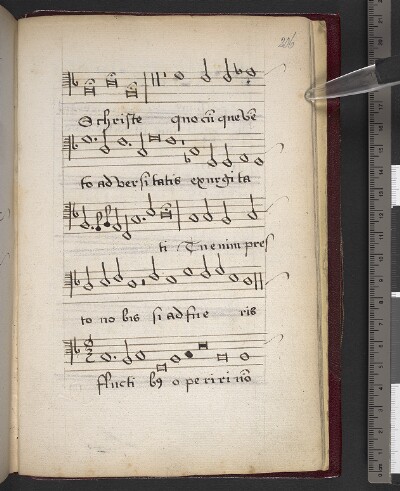 226
O christe quo cū que vē
to ad versi tatis exurgi ta
ti Tu enim pres
to no bis si ad fue ris
flucti bꝰ o pe riri nō